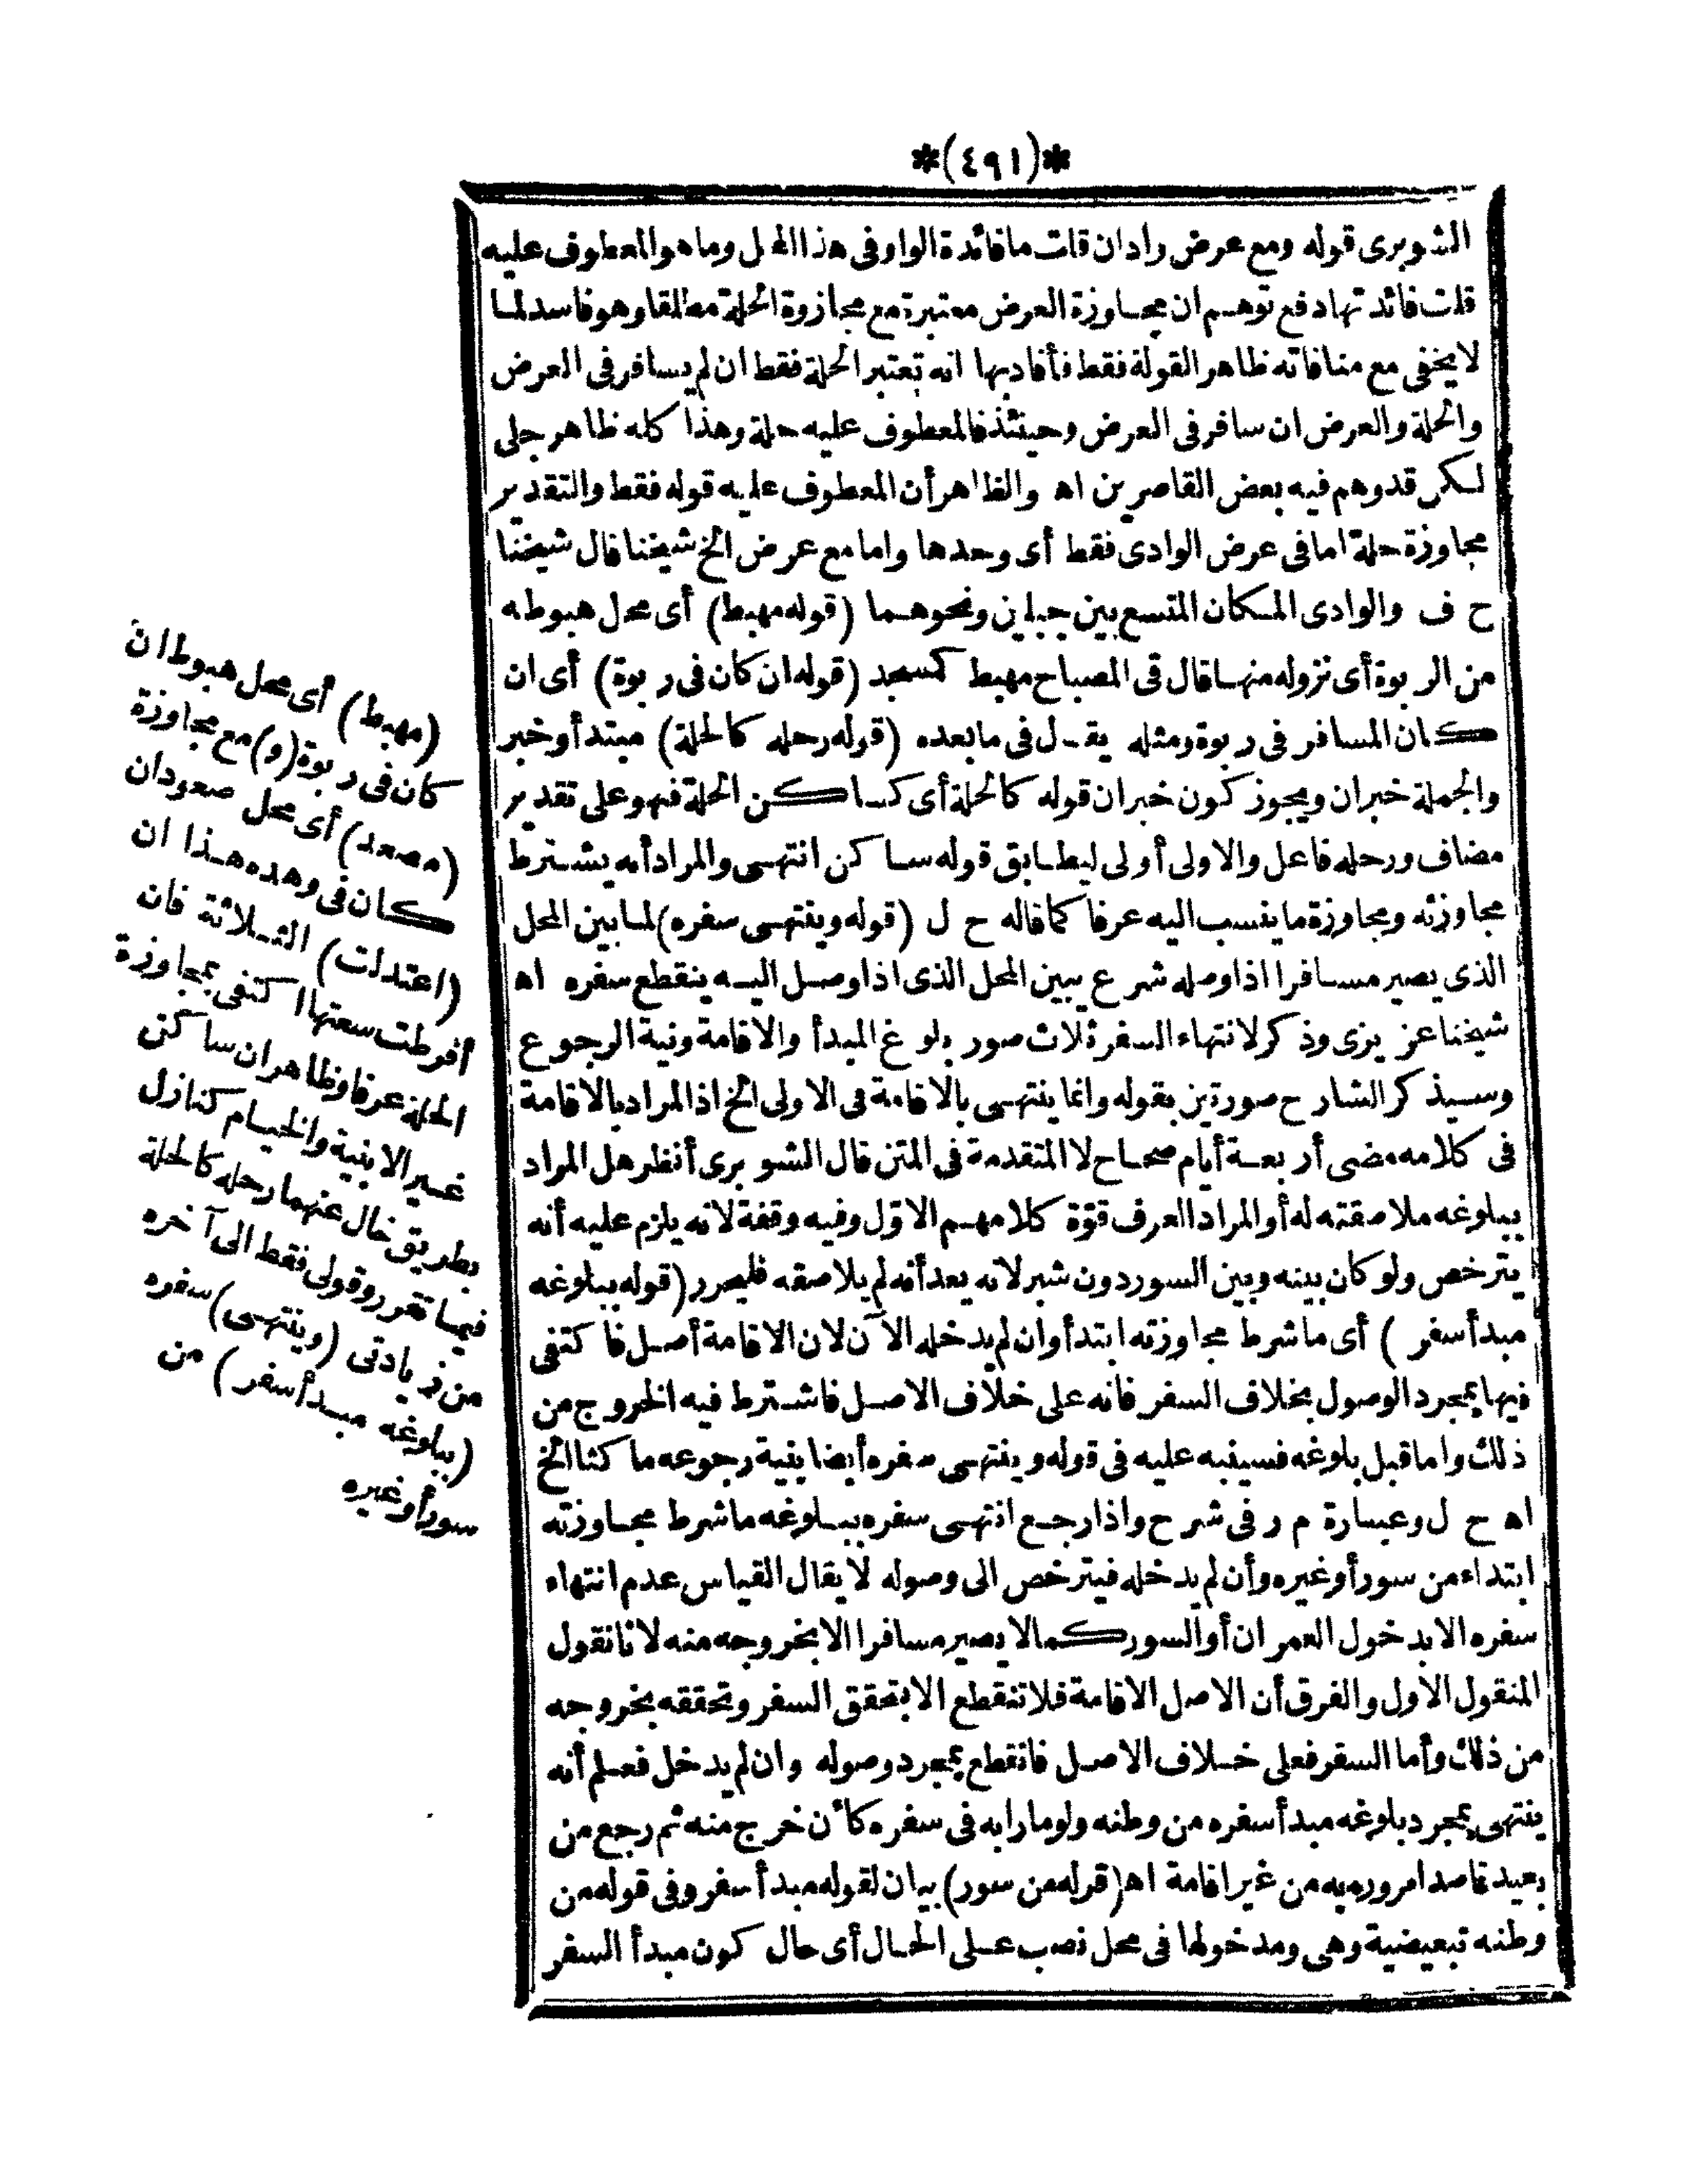 *(٤٩١)*
الشوبرى قوله ومع عرض واد ان قلت ما فائدة الواو فى هذا المحل وما هو المعطوف عليه
قلت فائدتها دفع توهم ان مجاوزة العرض معتبرة مع مجاوزة الحلة مطلقا وهو فاسد لما
لا يخفى مع منافاته ظاهر القولة فقط فأفاد بها انه تعتبر الحلة فقط ان لم يسافر فى العرض
والحلة والعرض ان سافر فى العرض وحينئذ فالمعطوف عليه حلة وهذا كله ظاهر جلى
لكن قد وهم فيه بعض القاصرين اه والظاهر أن المعطوف عليه قوله فقط والتقدير
مجاوزة حلة اما فى عرض الوادى فقط أى وحدها واما مع عرض الخ شيخنا قال شيخنا
ح ف والوادى المكان المتسع بين جبلين ونحوهما (قوله مهبط) أى محل هبوطه
من الربوة أى نزوله منها قال فى المصباح مهبط كمسجد (قوله ان كان فى ربوة) أى ان
كان المسافر فى ربوة ومثله يقال فى ما بعده (قوله رحله كالحلة) مبتدأ وخبر
والجملة خبر ان ويجوز كون خبر ان قوله كالحلة أى كساكن الحلة فهو على تقدير
مضاف ورحله فاعل والاولى أولى ليطابق قوله ساكن انتهى والمراد أنه يشترط
مجاوزته ومجاوزة ما ينسب اليه عرفا كما قاله ح ل (قوله وينتهى سفره) لما بين المحل
الذى يصير مسافرا اذا وصله شرع يبين المحل الذى اذا وصل اليه ينقطع سفره اه
شيخنا عزيزى وذكر لانتهاء السفر ثلاث صور بلوغ المبدأ والاقامة ونية الرجوع
وسيذكر الشارح صورتين بقوله وانما ينتهى بالاقامة فى الاولى الخ اذ المراد بالاقامة
فى كلامه مضى أربعة أيام صحاح لا المتقدمة فى المتن قال الشوبرى أنظر هل المراد
ببلوغه ملاصقته له أو المراد العرف قوّة كلامهم الاوّل وفيه وقفة لانه يلزم عليه أنه
يترخص ولو كان بينه وبين السور دون شبر لانه يعد أنه لم يلاصقه فليحرر (قوله ببلوغه
مبدأ سفر ) أى ما شرط مجاوزته ابتدأ وان لم يدخله الآن لان الاقامة أصل فاكتفى
فيها بمجرد الوصول بخلاف السفر فانه على خلاف الاصل فاشترط فيه الخروج من
ذلك واما قبل بلوغه فسينبه عليه فى قوله وينتهى سفره أيضا بنية رجوعه ماكثا الخ
اه ح ل وعبارة م ر فى شرح واذا رجع انتهى سفره ببلوغه ما شرط مجاوزته
ابتداء من سور أو غيره وأن لم يدخله فيترخص الى وصوله لا يقال القياس عدم انتهاء
سفره الا بدخول العمران أو السور كما لا يصير مسافرا الا بخروجه منه لانا نقول
المنقول الاول والفرق أن الاصل الاقامة فلا تنقطع الا بتحقق السفر وتحققه بخروجه
من ذلك وأما السفر فعلى خلاف الاصل فانقطع بمجرد وصوله وان لم يدخل فعلم أنه
ينتهى بمجرد بلوغه مبدأ سفره من وطنه ولو مارا به فى سفره كأن خرج منه ثم رجع من
بعيد قاصدا مروره به من غير اقامة اه (قوله من سور) بيان لقوله مبدأ سفر وفى قوله من
وطنه تبعيضية وهى ومدخولها فى محل نصب على الحال أى حال كون مبدأ السفر
(مهبط) أى محل هبوط ان
كان فى ربوة (و) مع مجاوزة
(مصعد) أى محل صعود ان
كان فى وهده هذا ان
(اعتدلت) الثلاثة فان
أفرطت سعتها اكتفى بمجاوزة
الحلة عرفا وظاهر ان ساكن
غير الابنية والخيام كنازل
بطريق خال عنهما رحله كالحلة
فيما تقرر وقولى فقط الى آخره
من زيادتى (وينتهى) سفره
(ببلوغه مبدأ سفر) من
سور أو غيره